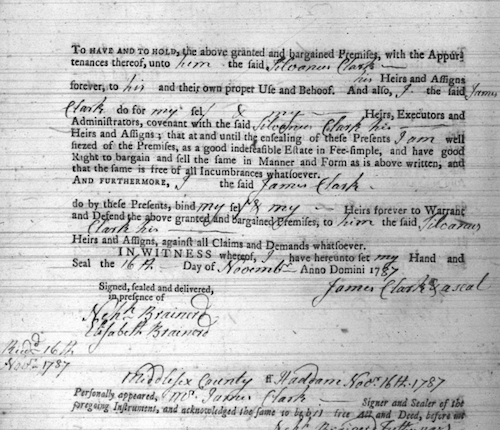 TO HAVE AND TO HOLD, the above granted and bargained Premises, with the Appur-
tenances thereof, unto him the said Silvanus Clark
his Heirs and Assigns
forever, to his and their own proper Use and Behoof. And also, I the said James
Clark do for my self & my Heirs, Executors and
Administrators, covenant with the said Silvanus Clark his
Heirs and Assigns; that at and until the ensealing of these Presents I am well
seized of the Premises, as a good indefeasible Estate in Fee-Simple, and have good
Right to bargain and sell the same in Manner and Form as is above written, and
that the same is free of all Incumbrances whatsoever.
AND FURTHERMORE, I the said James Clark
do by these Presents, bind my self & my Heirs forever to Warrant
and Defend the above granted and bargained Premises, to him the said Silvanus
Clark his
Heirs and Assigns, against all Claims and Demands whatsoever.
IN WITNESS whereof, I have hereunto set my Hand and
Seal the 16th. Day of Novembr Anno Domini 1787
James Clark & a seal
Signed, sealed and delivered,
in presence of
Nehh. Brainerd
Elisabeth Brainerd
Recd 16th
Novr. 1787
Middlesex County ss Haddam Novr. 16th. 1787
Personally appeared, Mr. James Clark Signer and Sealer of the
foregoing Instrument, and acknowledged the same to be his free Act and Deed, before me